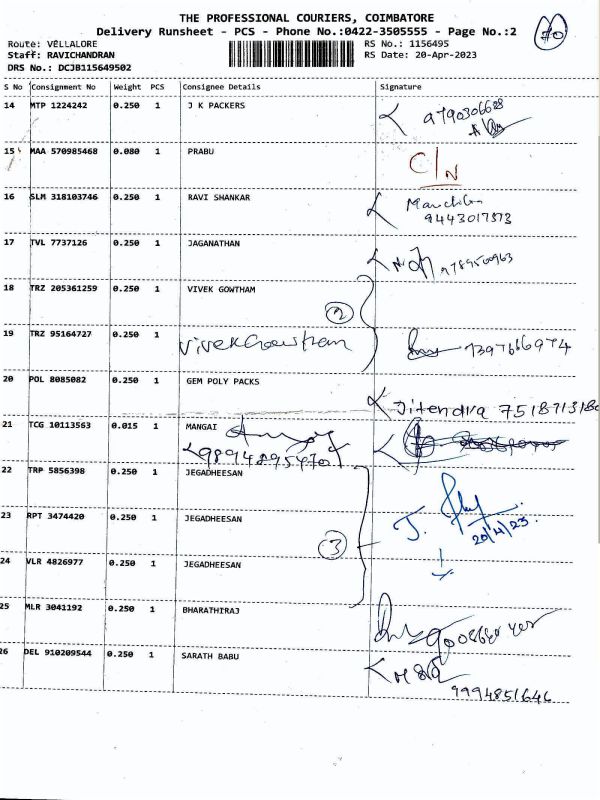 THE PROFESSIONAL COURIERS, COIMBATORE
Delivery Runsheet - PCS - Phone No.:0422-3505555 - Page No.:2
Route: VELLALORE RS No.: 1156495
Staff: RAVICHANDRAN RS Date: 20-Apr-2023
DRS No.: DCJB115649502
S No Consignment No Weight PCS Consignee Details Signature
14 MTP 1224242 0.250 1 J K PACKERS 9790306628
15 MAA 570985468 0.080 1 PRABU C/N
16 SLM 318103746 0.250 1 RAVI SHANKAR
9443017373
17 TVL 7737126 0.250 1 JAGANATHAN 9789500963
18 TRZ 205361259 0.250 1 VIVEK GOWTHAM
2
19 TRZ 95164727 0.250 1 VivekGowtham 7397666974
20 POL 8085082 0.250 1 GEM POLY PACKS
Jitendra
21 TCG 10113563 0.015 1 MANGAI
9894895470
22 TRP 5856398 0.250 1 JEGADHEESAN
23 RPT 3474420 0.250 1 JEGADHEESAN J.
20/4/23.
3
24 VLR 4826977 0.250 1 JEGADHEESAN
25 MLR 3041192 0.250 1 BHARATHIRAJ
26 DEL 910209544 0.250 1 SARATH BABU
9994851646